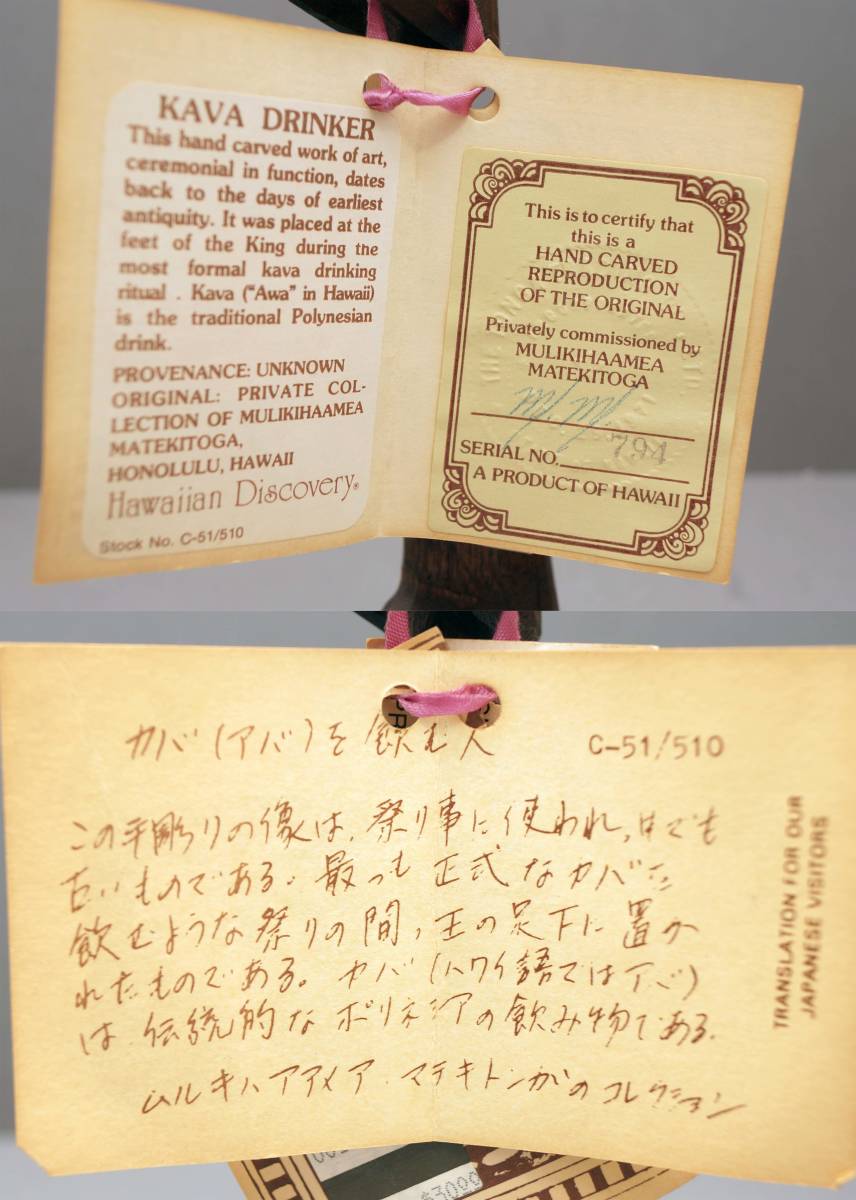 KAVA DRINKER
This hand carved work of art,
ceremonial in function, dates
back to the days of earliest
antiquity. It was placed at the
feet of the King during the
most formal kava drinking
ritual . Kava (“Awa” in Hawaii)
is the traditional Polynesian
drink.
PROVENANCE: UNKNOWN
ORIGINAL: PRIVATE COL-
LECTION OF MULIKIHAAMEA
MATEKITOGA,
HONOLULU, HAWAII
Hawaiian Discovery®
Stock No. C-51/510
This is to certify that
this is a
HAND CARVED
REPRODUCTION
OF THE ORIGINAL
Privately commissioned by
MULIKIHAAMEA
MATEKITOGA
SERIAL NO. 794
A PRODUCT OF HAWAII
カバ(アバ)を飲む人
C-51/510
この手彫りの像は、祭り事に使われ、中でも
古いものである。最っも正式なカバを
飲むような祭りの間、王の足下に置か
れたものである。カバ(ハワイ語ではアバ)
は、伝統的なポリネシアの飲み物である。
ムルキハアアメア・マテキトンガのコレクション
TRANSLATION FOR OUR
JAPANESE VISITORS